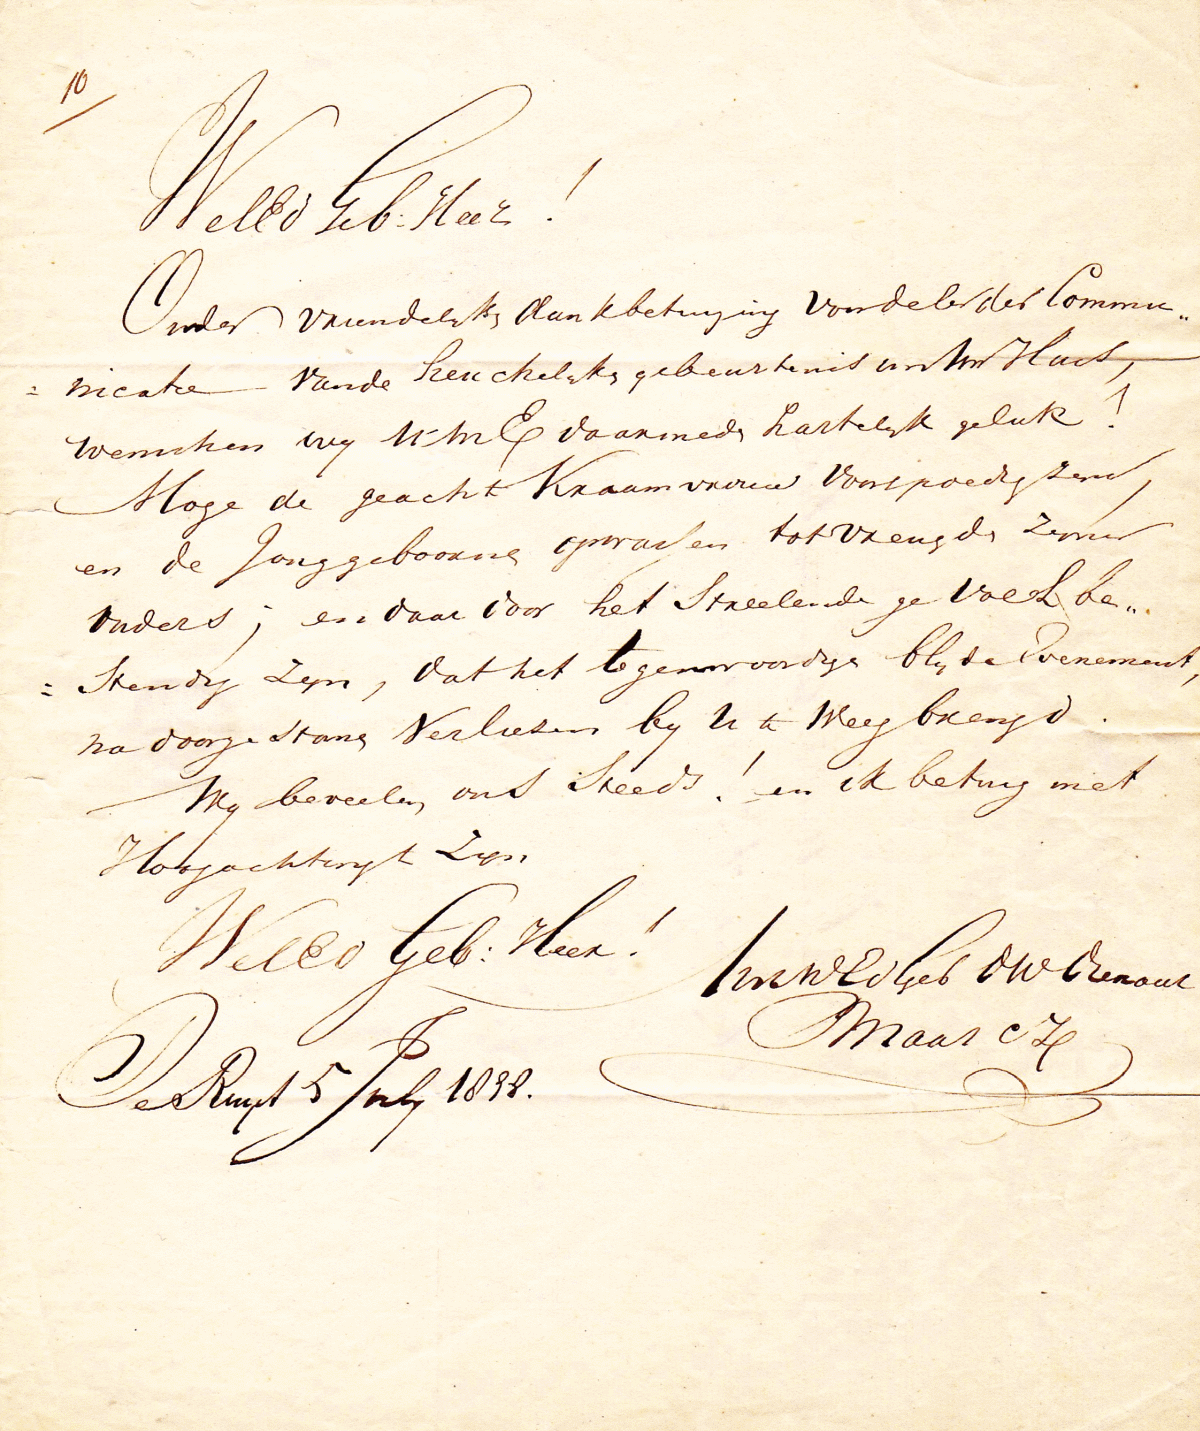 10
WelEd Geb: Heer!
Onder vriendelyke dankbetuiging voor de beider Commu„
„nicatie van de heuchelyke gebeurtenis in Uw Huis,
wenschen wy UwE daarmede hartelyk geluk!
Moge de geachte Kraamvrouw voorspoedig zyn,
en de Jonggeboorne opwassen tot vreugde zyner
ouders; en daar door het Streelende gevoel be„
„stendig zyn, dat het tegenwoordige blyde Evenement,
na doorgestane Verliezen by U te Weeg brengd.
Wy beveelen ons Steeds! en ik betuig met
Hoogachting te Zyn
WelEd Geb: Heer!
Uw WEdGeb DW Dienaar
Maas
De Ruyt 5 July 1838.